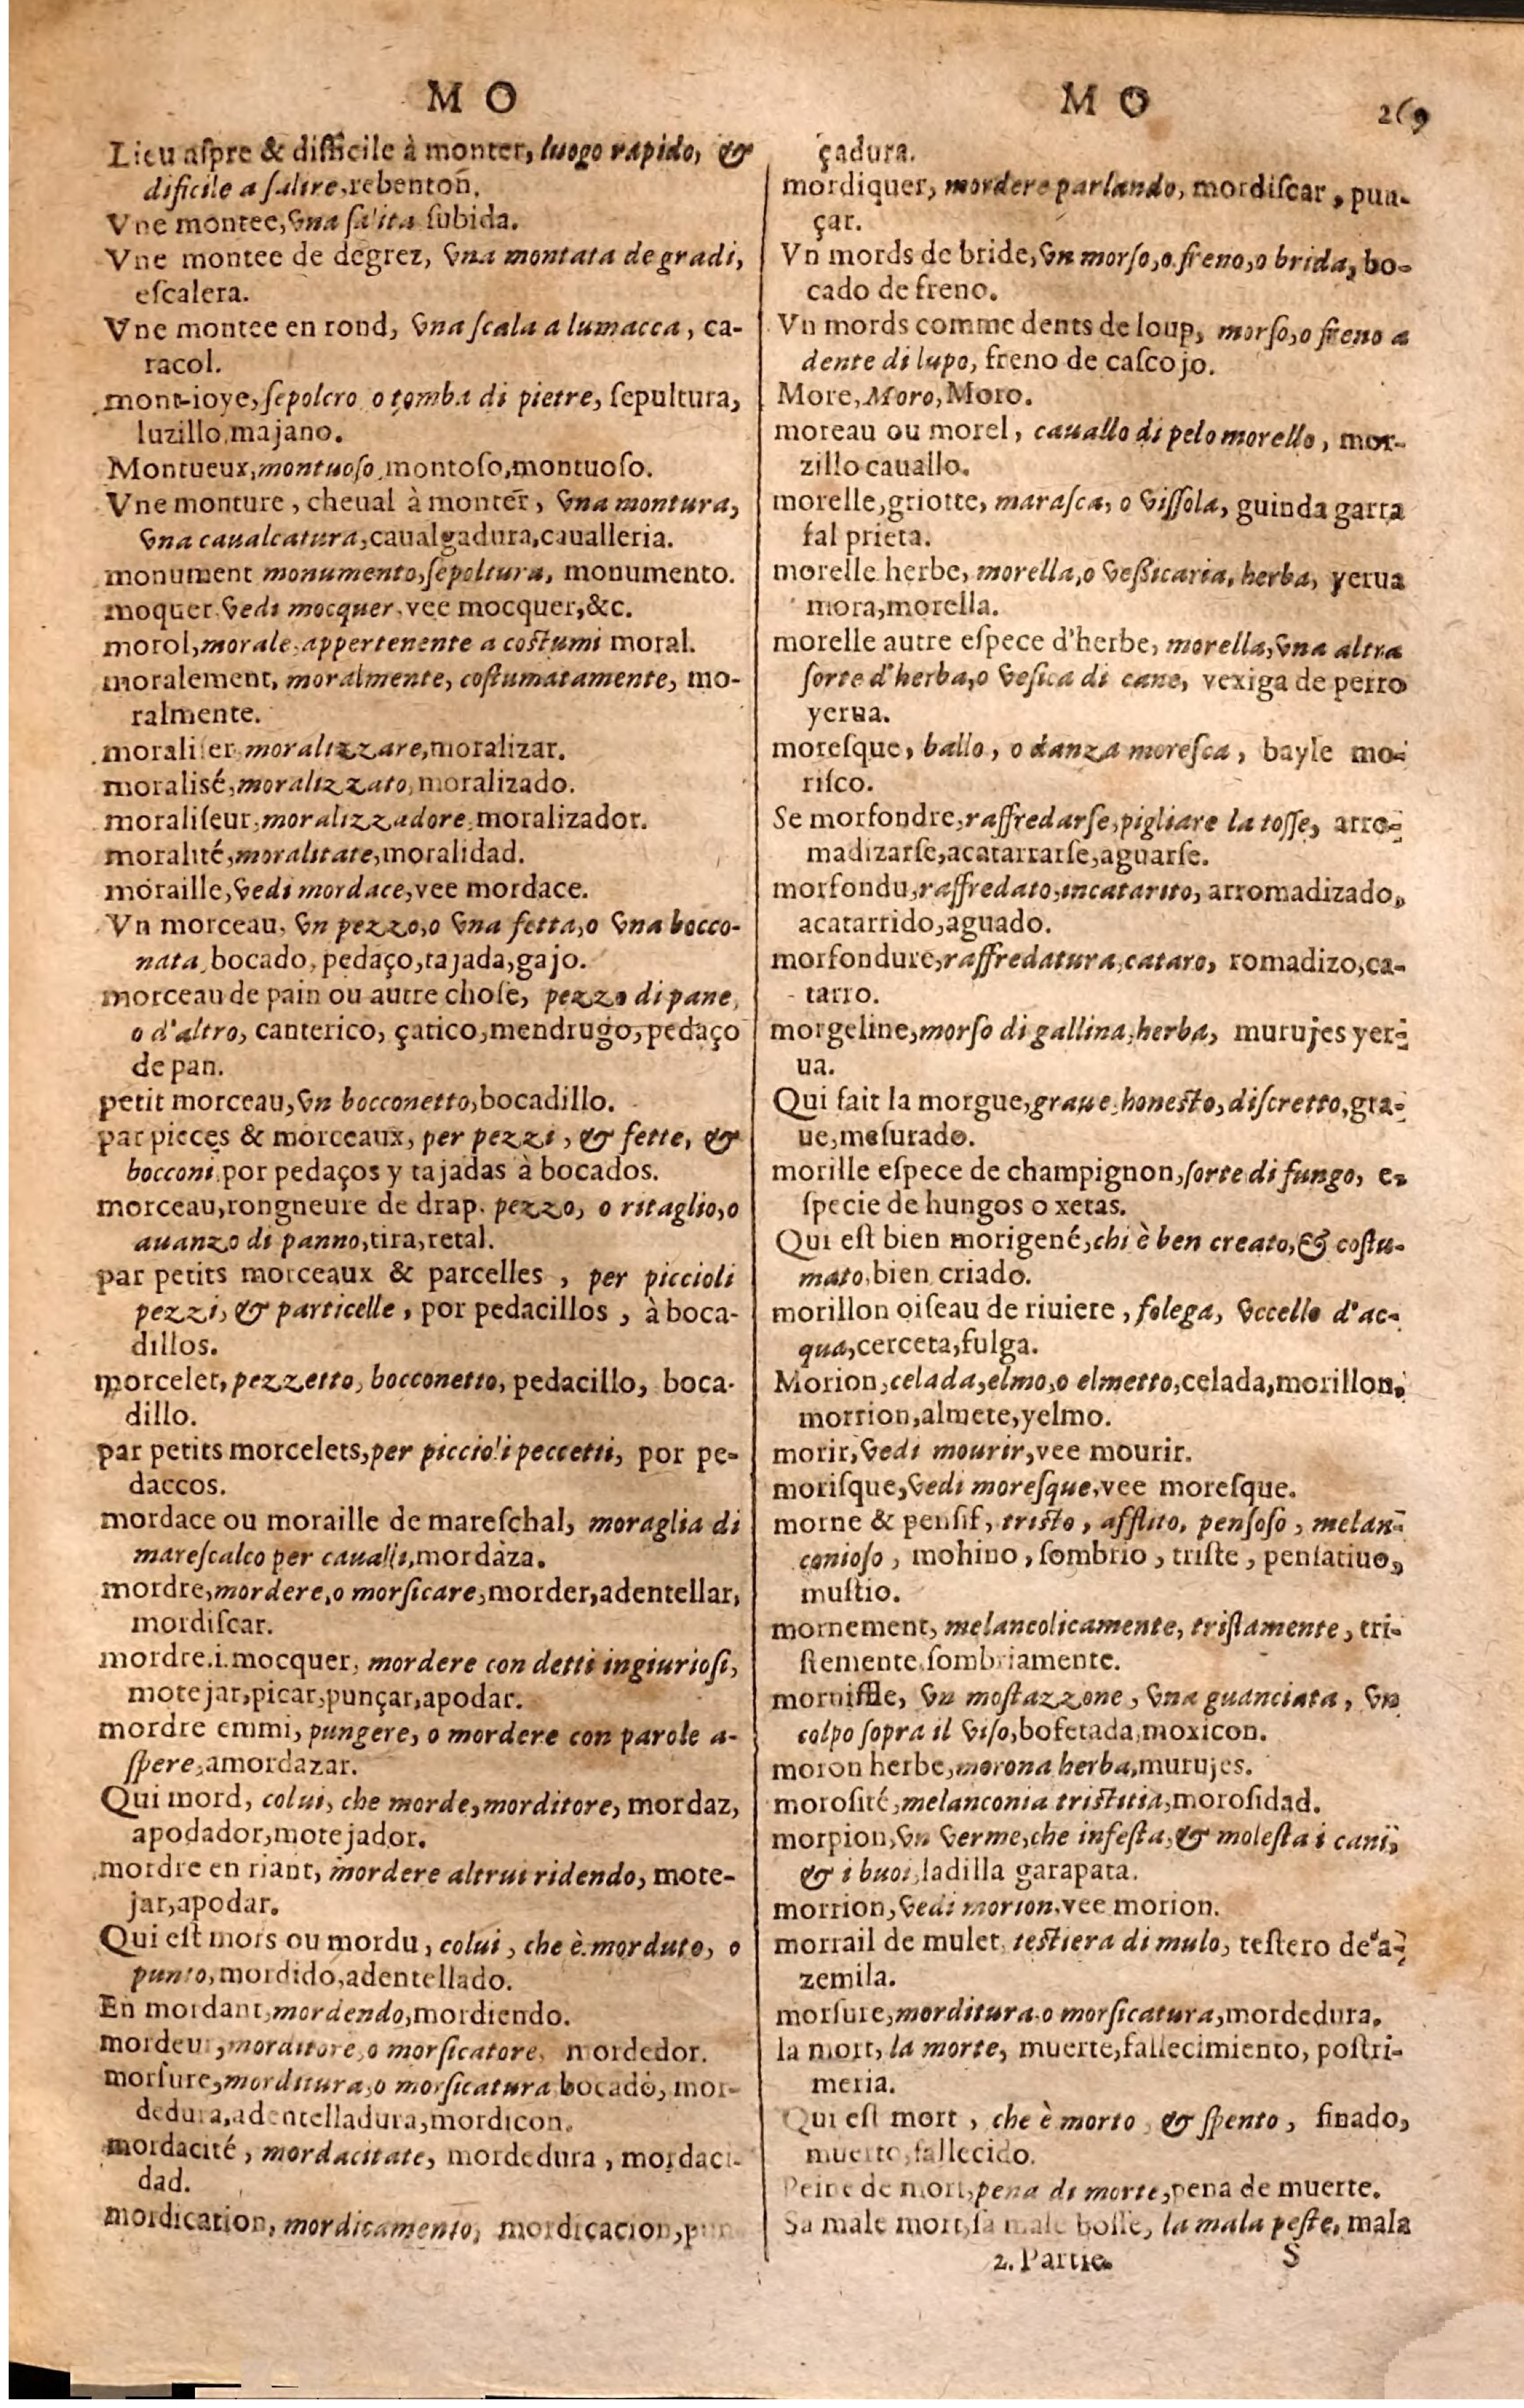 M O
Lieu aſpre & difficile à monter, luogo rapido, &
dificile a ſalire, rebenton.
Vne montee, vna ſalita ſubida.
Vne montee de degrez, vna montata de gradi,
eſcalera.
Vne montee en rond, vna ſcala a lumacca, ca-
racol.
mont-ioye, ſepolcro o tomba di pietre, ſepultura,
luzillo, majano.
Montueux, montuoſo, montoſo, montuoſo.
Vne monture, cheual à monter, vna montura,
vna caualcatura, caualgadura, caualleria.
monument monumento, ſepoltura, monumento.
moquer vedi mocquer, vee mocquer, &c.
morol, morale, appertenente a coſtumi moral.
moralement, moralmente, coſtumatamente, mo-
ralmente.
moraliſer moralizzare, moralizar.
moralisé, moralizzato, moralizado.
moraliſeur, moralizzadore, moralizador.
moralité, moralitate, moralidad.
moraille, vedi mordace, vee mordace.
Vn morceau, vn pezzo, o vna fetta, o vna bocco-
nata, bocado, pedaço, tajada, gajo.
morceau de pain ou autre choſe, pezzo di pane,
o d'altro, canterico, çatico, mendrugo, pedaço
de pan.
petit morceau, vn bocconetto, bocadillo.
par pieces & morceaux, per pezzi, & fette, &
bocconi, por pedaços y tajadas à bocados.
morceau, rongneure de drap. pezzo, o ritaglio, o
auanzo di panno, tira, retal.
par petits morceaux & parcelles, per piccioli
pezzi, & particelle, por pedacillos, à boca-
dillos.
morcelet, pezzetto, bocconetto, pedacillo, boca-
dillo.
par petits morcelets, per piccioli peccetti, por pe-
daccos.
mordace ou moraille de mareſchal, moraglia di
mareſcalco per caualli, mordàza.
mordre, mordere, o morſicare, morder, adentellar,
mordiſcar.
mordre.i.mocquer, mordere con detti ingiurioſi,
motejar, picar, punçar, apodar.
mordre emmi, pungere, o mordere con parole a-
ſpere, amordazar.
Qui mord, colui, che morde, morditore, mordaz,
apodador, motejador.
mordre en riant, mordere altrui ridendo, mote-
jar, apodar.
Qui eſt mors ou mordu, colui, che è morduto, o
punto, mordido, adentellado.
En mordant, mordendo, mordiendo.
mordeur, morditore, o morſicatore, mordedor.
morſure, morditura, o morſicatura bocado, mor-
dedura, adentelladura, mordicon.
mordacité, mordacitate, mordedura, mordaci-
dad.
mordication, mordicamento, mordicacion, pun
M O
269
çadura.
mordiquer, mordere parlando, mordiſcar, pun-
çar.
Vn mords de bride, vn morſo, o freno, o brida, bo-
cado de freno.
Vn mords comme dents de loup, morſo, o freno a
dente di lupo, freno de caſcojo.
More, Moro, Moro.
moreau ou morel, cauallo di pelo morello, mor-
zillo cauallo.
morelle, griotte, maraſca, o viſſola, guinda garra
fal prieta.
morelle herbe, morella, o veßicaria, herba, yerua
mora, morella.
morelle autre eſpece d'herbe, morella, vna altra
ſorte d'herba, o veſica di cane, vexiga de perro
yerua.
moreſque, ballo, o danza moreſca, bayle mo-
riſco.
Se morfondre, raffredarſe, pigliare la toſſe, arro-
madizarſe, acatarrarſe, aguarſe.
morfondu, raffredato, incatarito, arromadizado,
acatarrido, aguado.
morfondure, raffredatura, cataro, romadizo, ca-
tarro.
morgeline, morſo di gallina, herba, murujes yer-
ua.
Qui fait la morgue, graue, honeſto, diſcretto, gra-
ue, meſurado.
morille eſpece de champignon, ſorte di fungo, e-
ſpecie de hungos o xetas.
Qui eſt bien morigené, chi è ben creato, & coſtu-
mato, bien criado.
morillon oiſeau de riuiere, folega, vccello d'ac-
qua, cerceta, fulga.
Morion, celada, elmo, o elmetto, celada, morillon,
morrion, almete, yelmo.
morir, vedi mourir, vee mourir.
moriſque, vedi moreſque, vee moreſque.
morne & penſif, triſto, afflito, penſoſo, melan-
conioſo, mohino, ſombrio, triſte, penſatiuo,
muſtio.
mornement, melancolicamente, triſtamente, tri-
ſtemente ſombriamente.
morniffle, vn moſtazzone, vna guanciata, vn
colpo ſopra il viſo, bofetada, moxicon.
moron herbe, morona herba, murujes.
moroſité, melanconia triſtitia, moroſidad.
morpion, vn verme, che infeſta, & moleſta i cani,
& i buoi, ladilla garapata.
morrion, vedi morion, vee morion.
morrail de mulet, teſtiera di mulo, teſtero de a-
zemila.
morſure, morditura o morſicatura, mordedura.
la mort, la morte, muerte, fallecimiento, poſtri-
meria.
Qui eſt mort, che è morto, & ſpento, finado,
muerto, fallecido.
Peine de mort, pena di morte, pena de muerte.
Sa male mort, ſa male boſſe, la mala peſte, mala
2. Partie.
S